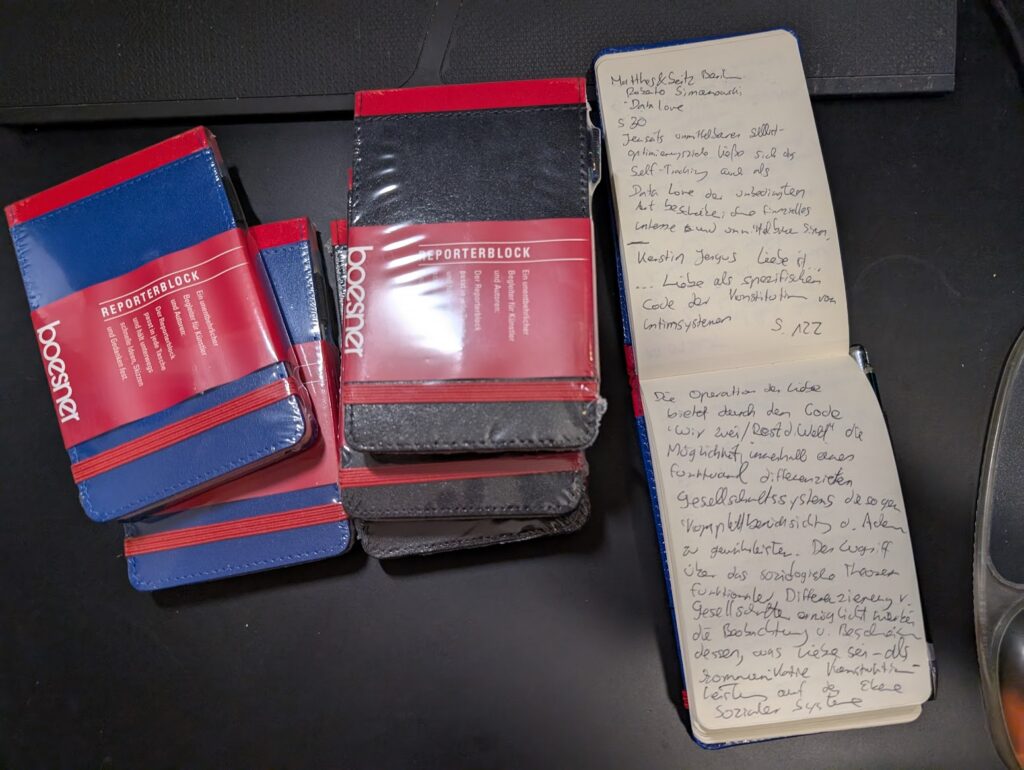 boesner
REPORTERBLOCK
Ein unentbehrlicher
Begleiter für Künstler
und Autoren:
Der Reporterblock
passt in jede Tasche
und hält unterwegs
schnelle Ideen, Skizzen
und Gedanken fest.
boesner
REPORTERBLOCK
Ein unentbehrlicher
Begleiter für Künstler
und Autoren:
Der Reporterblock
passt in
Matthes & Seitz Berlin
Roberto Simanowski
Data Love
S 30
Jenseits unmittelbaren Selbst-
optimierungsziele ließe sich das
Self-Tracking auch als
Data Love der unbedingten
Art beschreiben, ohne finanzielles
und unmittelbaren
Kerstin Jergus Liebe ist ...
... Liebe als spezifischen
Code der Konstitution von
Intimsystemen S. 122
Die Operation der Liebe
bietet durch den Code
"Wir zwei/Rest d. Welt" die
Möglichkeit, innerhalb eines
funktional differenzierten
Gesellschaftssystems die
zu gewährleisten. Der Zugriff
über das soziologische Theorem
funktionaler Differenzierung v.
Gesellschaften ermöglicht
die Beobachtung u. Beschreibung
dessen, was Liebe sei - als
kommunikative Konstruktions-
leistung auf der Ebene
sozialer Systeme